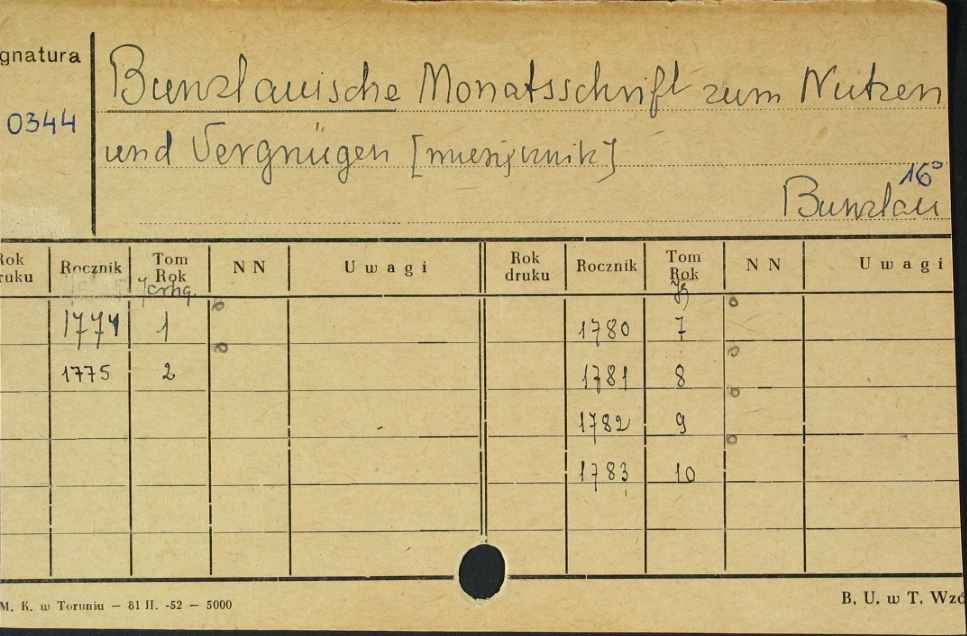 gnatura
0344
Bunzlauische Monatsschrift zum Nutzen
und Vergnügen [miesięcznik]
16°
Bunzlau
Rok druku Rocznik Tom Rok NN Uwagi Rok druku Rocznik Tom Rok NN Uwagi
Jahrg. J
1774 1 1780 7
1775 2 1781 8
1782 9
1783 10
M. K. w Toruniu — 81 II. -52 — 5000 B. U. w T. Wzó